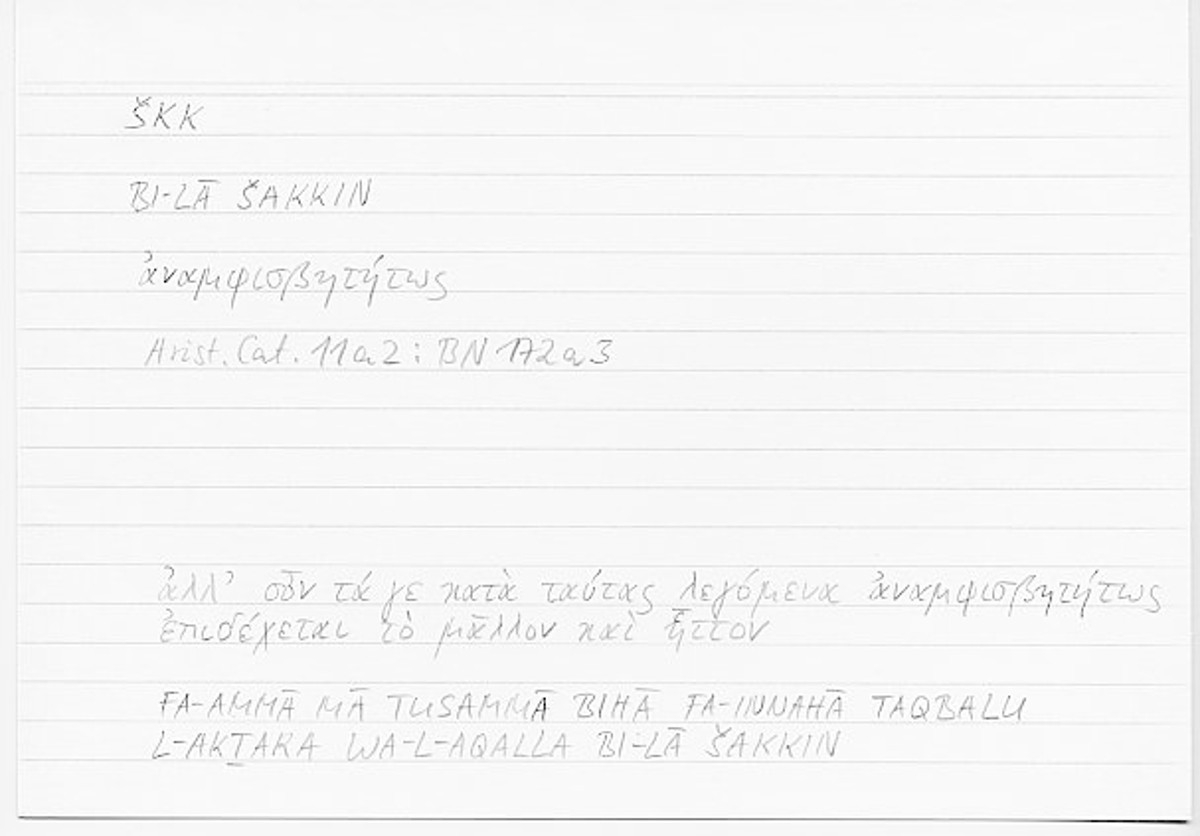 ŠKK
BI-LĀ ŠAKKIN
ἀναμφισβητήτως
Arist. Cat. 11a2 : BN 172a3
ἀλλ’ οὖν τά γε κατὰ ταύτας λεγόμενα ἀναμφισβητήτως
ἐπιδέχεται τὸ μᾶλλον καὶ ἧττον
FA-AMMĀ MĀ TUSAMMĀ BIHĀ FA-INNAHĀ TAQBALU
L-AKṮARA WA-L-AQALLA BI-LĀ ŠAKKIN